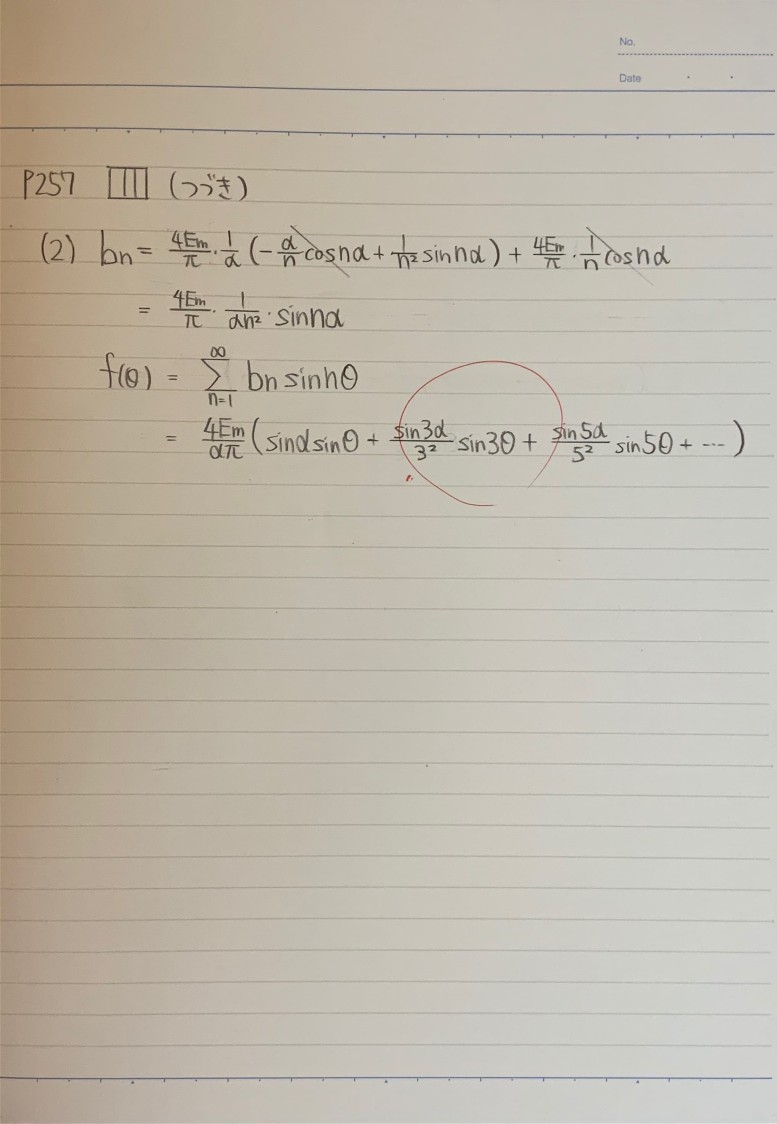 No.
Date
P257 Ⅲ (つづき)
(2) bn = 4Em/π · 1/α (−α/n cosnα + 1/n² sinnα) + 4Em/π · 1/n cosnα
= 4Em/π · 1/αn² · sinnα
f(θ) = ∑_{n=1}^{∞} bn sinnθ
= 4Em/απ (sinα sinθ + sin3α/3² sin3θ + sin5α/5² sin5θ + ⋯)